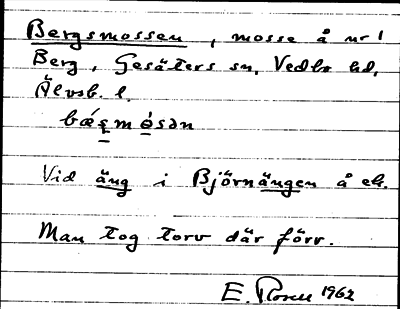 Bergsmossen, mosse å nr 1
Berg, Gesäters sn, Vedbo hd,
Älvsb. l.
bæ̀ʂmósən
Vid äng i Björnängen å ek.
Man tog torv där förr.
E. Rosell 1962